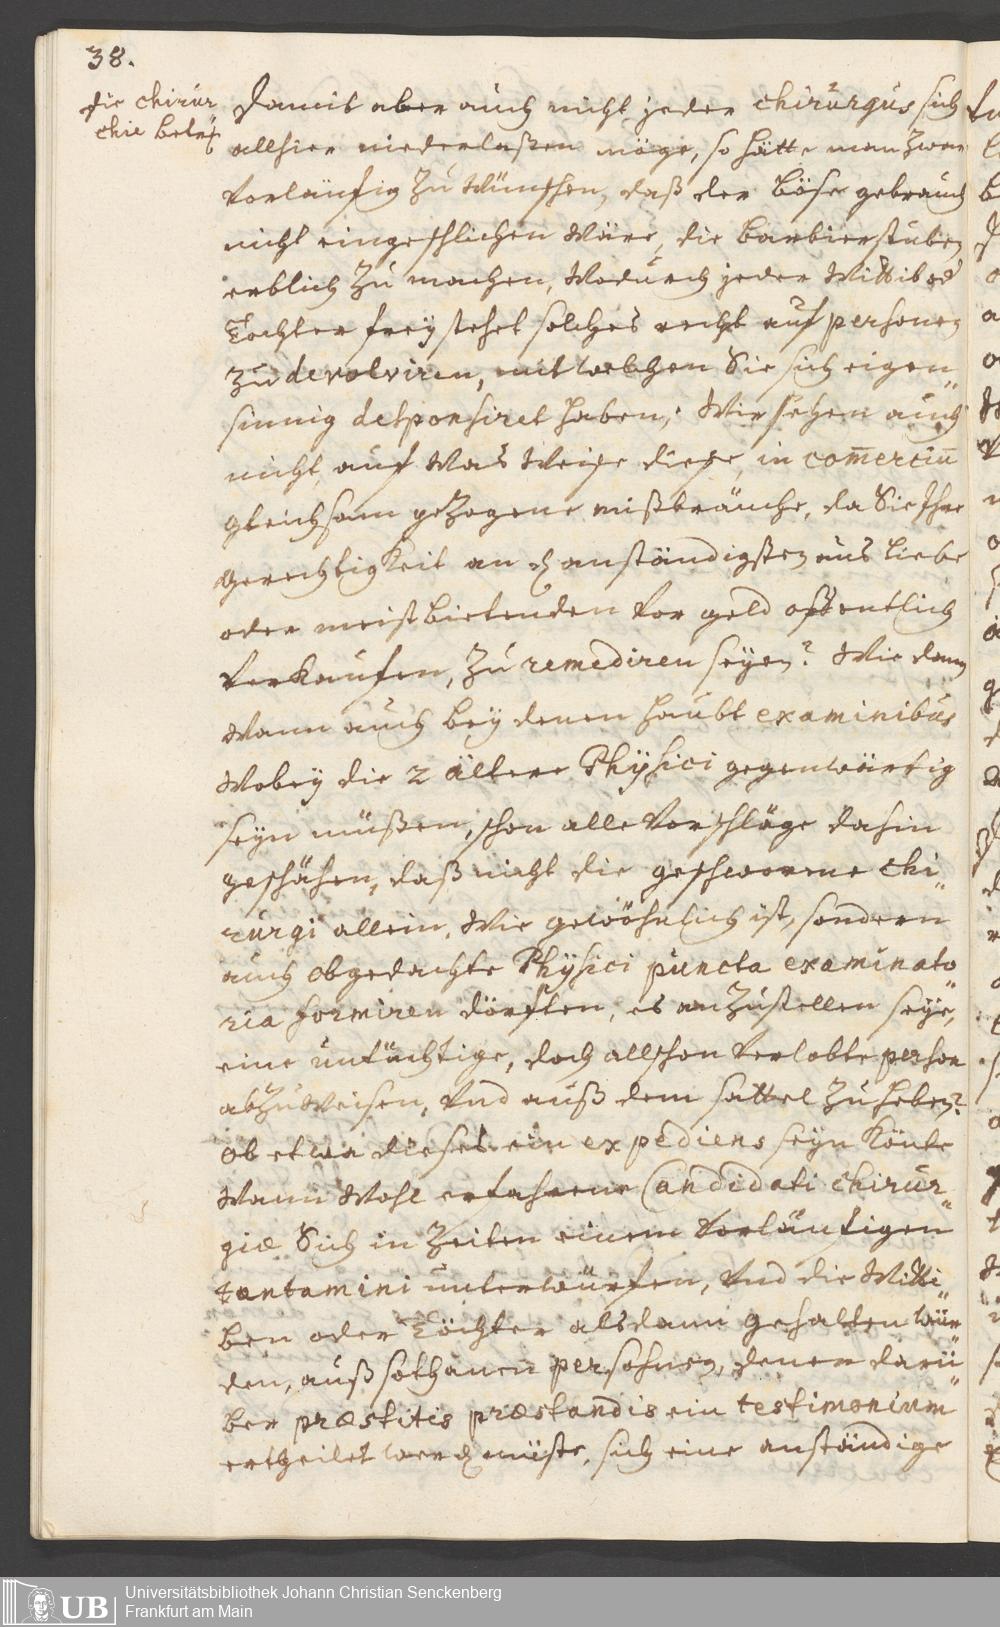 38.
die chirur
chie betrf
Damit aber auch nicht jeder chirurgus sich
allhier niederlaßen möge, so hätte man zwar
vorläufig zu wünschen, daß der böse gebrauch
nicht eingeschlichen wäre, die barbierstuben
erblich zu machen, wodurch jeder Wittib od
Tochter freystehet solches recht auf personen
zu devolviren, mit welchen Sie sich eigen„
sinnig desponsiret haben; Wir sehen auch
nicht, auf was Weiße diese, in comerciu
gleichsam gezogene mißbräuche, da Sie Ihre
gerechtigkeit an d anständigsten aus liebe
oder meistbietenden vor geld offentlich
verkaufen, zu remediren seyen? Wie dann
wann auch bey denen haubt examinibus
wobey die 2 ältere Physici gegenwärtig
seyn müßen, schon alle vorschläge dahin
geschähen, daß nicht die geschworene chi„
rurgi allein, wie gewöhnlich ist, sondern
auch obgedachte Physici puncta examinato„
ria formiren dörften, es anzustellen seye,
eine untüchtige, doch allschon verlobte person
abzuweisen, und auß dem sattel zu heben?
ob etwa dieses ein expediens seyn könte
wann wohl erfahrene Candidati chirur„
giæ Sich in Zeiten einem vorläufigen
tentamini unterwürfen, und die Witti„
ben oder Töchter alsdann gehalten wür„
den, auß sothanen persohnen, denen darü„
ber præstitis præstandis ein testimonium
ertheilet werd müste, sich eine anständige
UB
Universitätsbibliothek Johann Christian Senckenberg
Frankfurt am Main